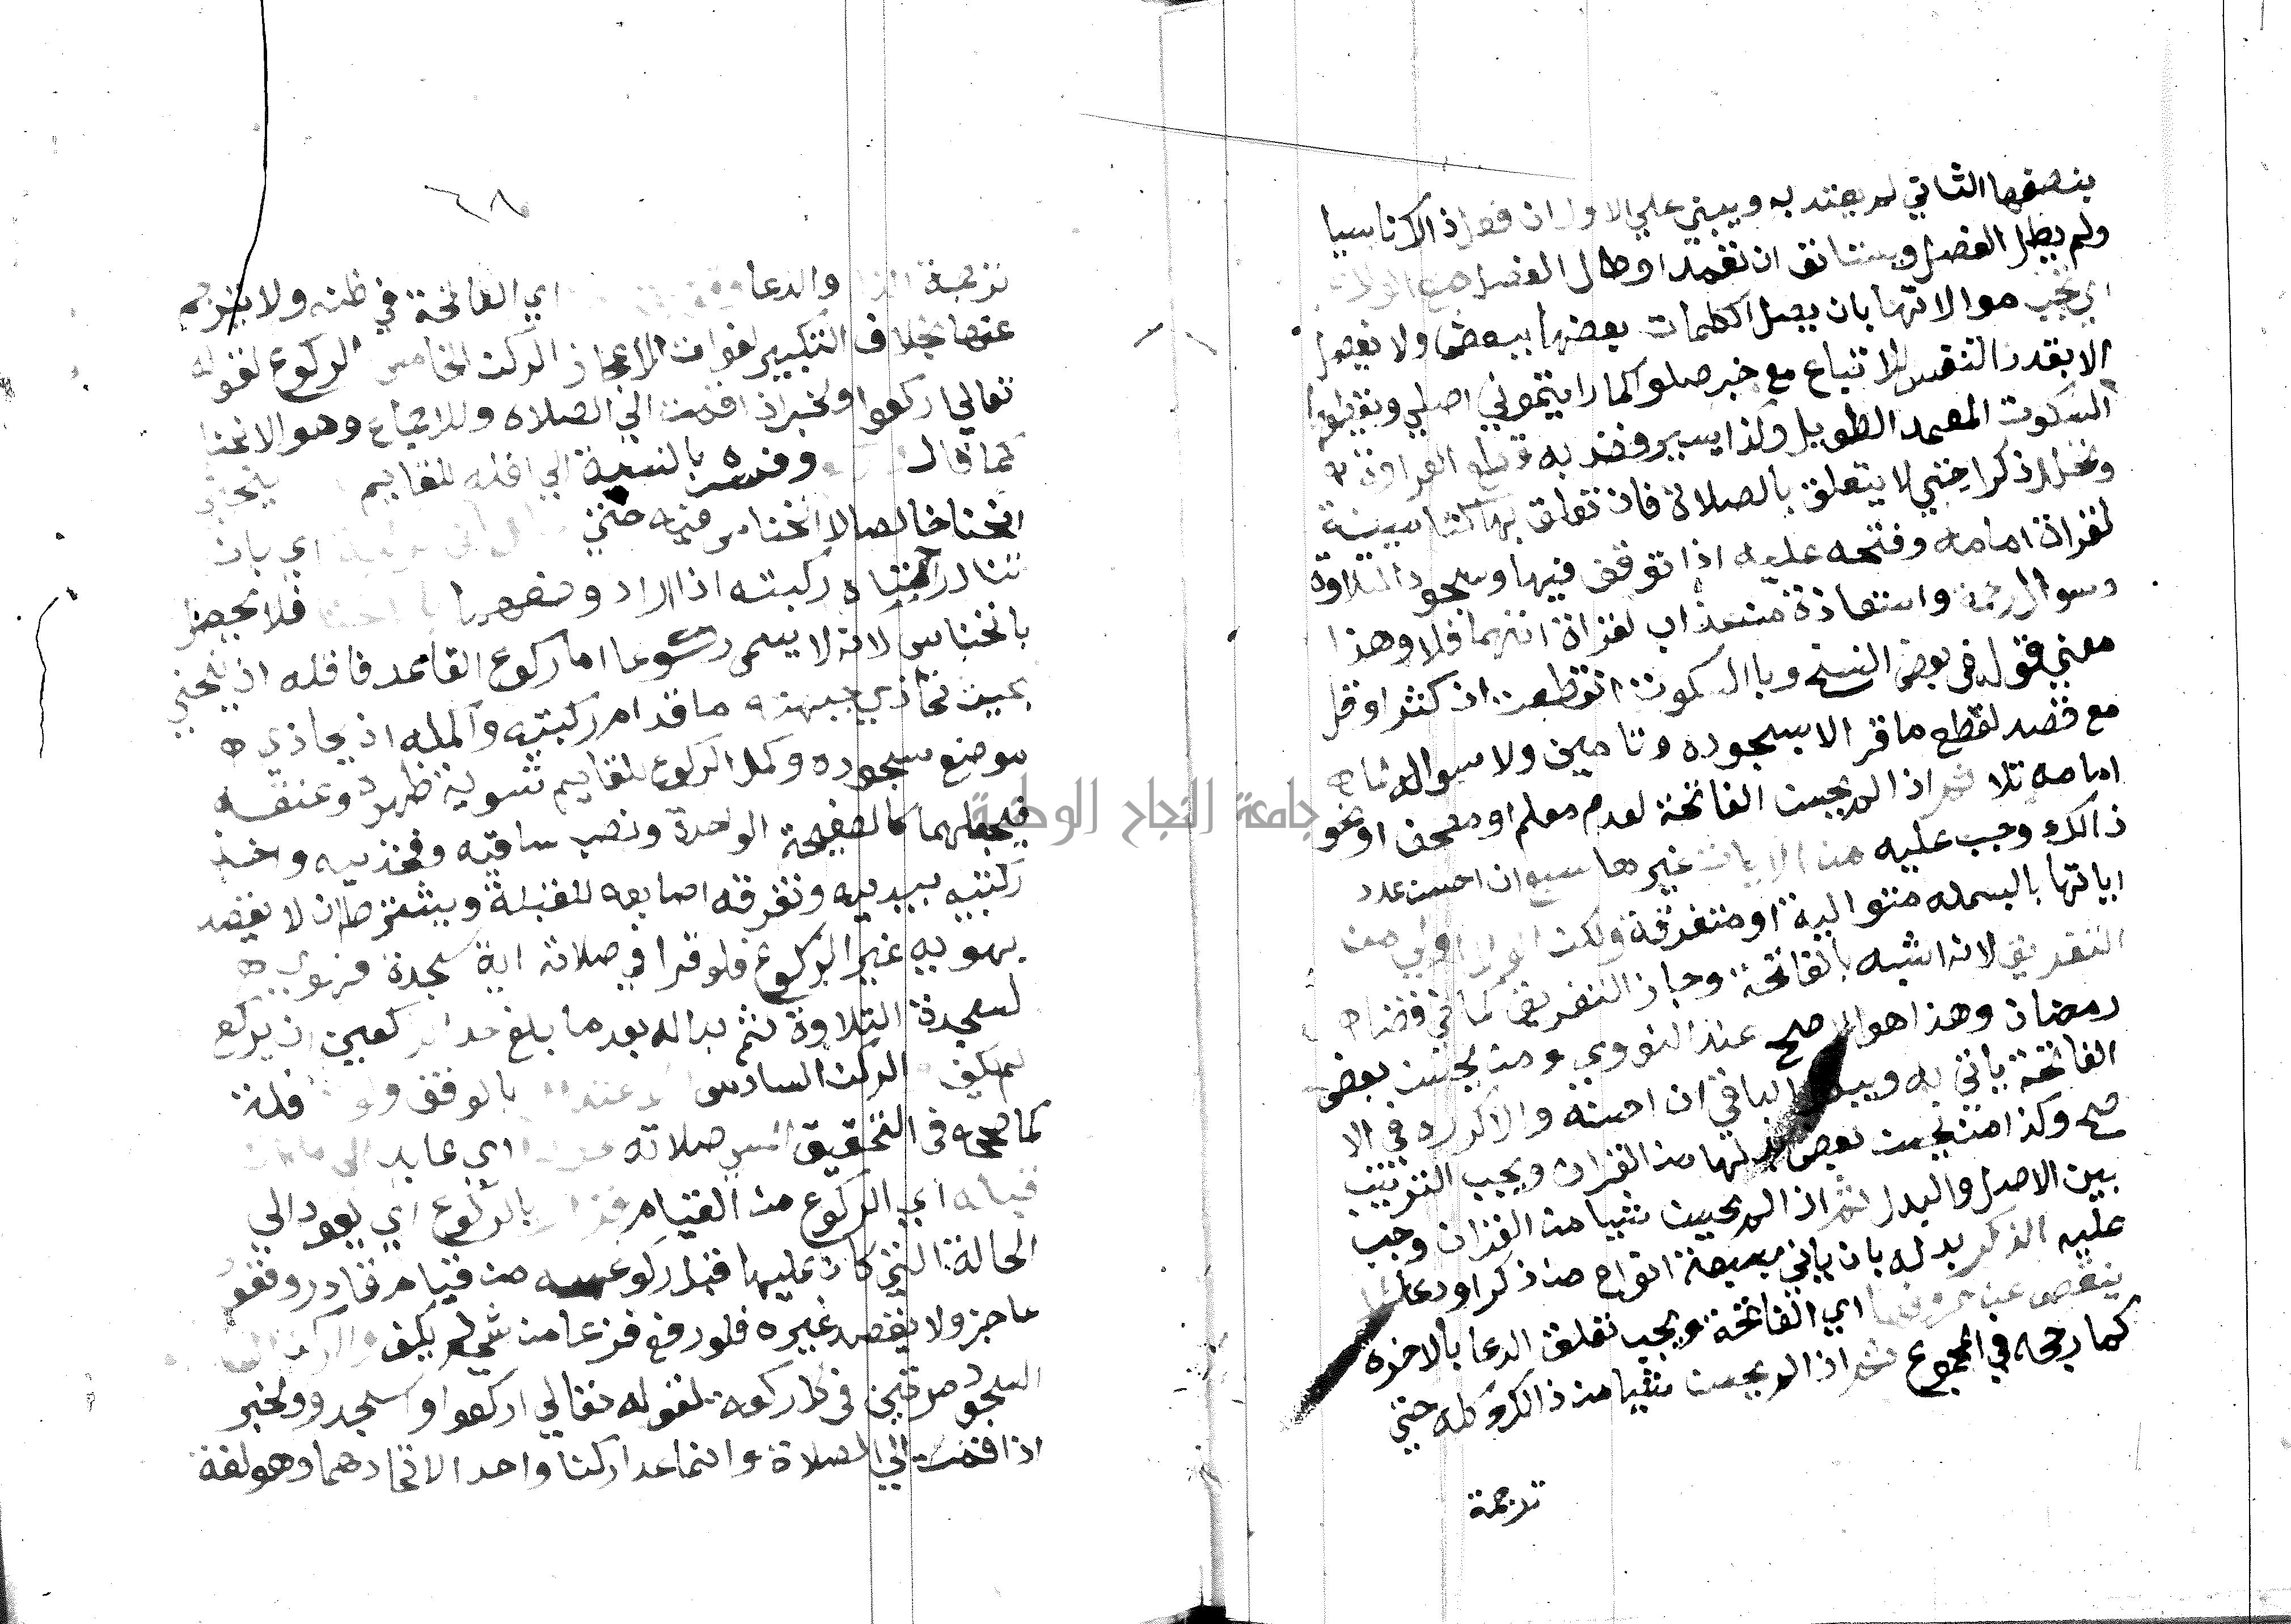 بنصفها الثاني لم يعتد به ويبني علي الاول ان فعل ذالك ناسيا
ولم يطل الفصل ويستانف ان تعمد او طال الفصل مع الولاء
اي تجب موالاتها بان يصل الكلمات بعضها ببعض ولا يفصل
الا بقدر التنفس للاتباع مع خبر صلوا كما رايتموني اصلي ويقطعها
السكوت المعمد الطويل وكذا يسير وقصد به قطع القراءة
وتخلل ذكر اجنبي لا يتعلق بالصلاة فان تعلق بها كتامينه
لقراة امامه وفتحه عليه اذا توقف فيها وسجود التلاوة
وسوال رحمة واستعاذة من عذاب لقراة ايتهما فلا وهذا
معني قوله في بعض النسخ وبالسكوت انقطعت ان كثر او قل
مع قصد لقطع ما قرا لا بسجوده وتامين ولا سوال لما
امامه تلا ثم اذا لم يحسن الفاتحة لعدم معلم او مصحف او نحو
ذالك وجب عليه من الايات غيرها سبع ان احسن عدد
اياتها بالبسمله متوالية او متفرقة ولكن اولي من
التفريق لانه اشبه بالفاتحة وجاز التفريق كما في قضاء
رمضان وهذا هو الاصح عند النووي ومن يحسن بعض
الفاتحة ياتي به ويبدل الباقي ان احسنه والا كرره في الا
صح وكذا من يحسن بعض بدلها من القران ويجب الترتيب
بين الاصل والبدل ثم اذا لم يحسن شيا من القران وجب
عليه الذكر بدله بان ياتي بسبعة انواع من ذكر او دعا
ينقص عن حروفها اي الفاتحة ويجب تعلق الدعا بالاخره
كما رجحه في المجموع ثم اذا لم يحسن شيا من ذالك وكله حتي
ترجمة
٦٨
ترجمة والدعا اي الفاتحة في ظنه ولا يترجم
عنها بخلاف التكبير لفوات الاعجاز الركن الخامس الركوع لقوله
تعالي اركعوا ولخبر اذا قمت الي الصلاه وللاجماع وهو الانحنا
كما قال وفسره بالنسبة الي اقله للقايم ينحني
انحنا خالصا لا انخناس فيه حتي اي بان
تنال راحتاه ركبته اذا اراد وضعهما فلا يحصل
بانخناس لانه لا يسمي ركوعا اما ركوع القاعد فاقله ان ينحني
بحيث تحاذي جبهته ما قدام ركبتيه واكمله ان يحاذي
موضع سجوده وكمل الركوع للقايم تسوية ظهره وعنقه
فيجعلهما كالصفيحة الواحدة ونصب ساقيه وفخذيه واخذ
ركبتيه بيديه وتفرقه اصابعه للقبلة ويشترط ان لا يقصد
بهويه غير الركوع فلو قرا في صلاته اية سجدة فهوي
لسجدة التلاوة ثم بدا له بعد ما بلغ حد الراكعين ان يركع
لم يكف الركن السادس بالوقف قلته
كما صححه في التحقيق صلاته اي عايد الي ما كان
قبله اي الركوع من القيام بالركوع اي يعود الي
الحالة التي كان عليها قبل ركوعه من قيام قادر وقعود
عاجز ولا يقصد غيره فلو رفع فزعا من شي لم يكف والركن
السجود مرتين في كل ركعة لقوله تعالي اركعوا واسجدوا ولخبر
اذا قمت الي الصلاة وانما عدا ركنا واحد الاتحادهما وهو لغة
جامعة النجاح الوطنية